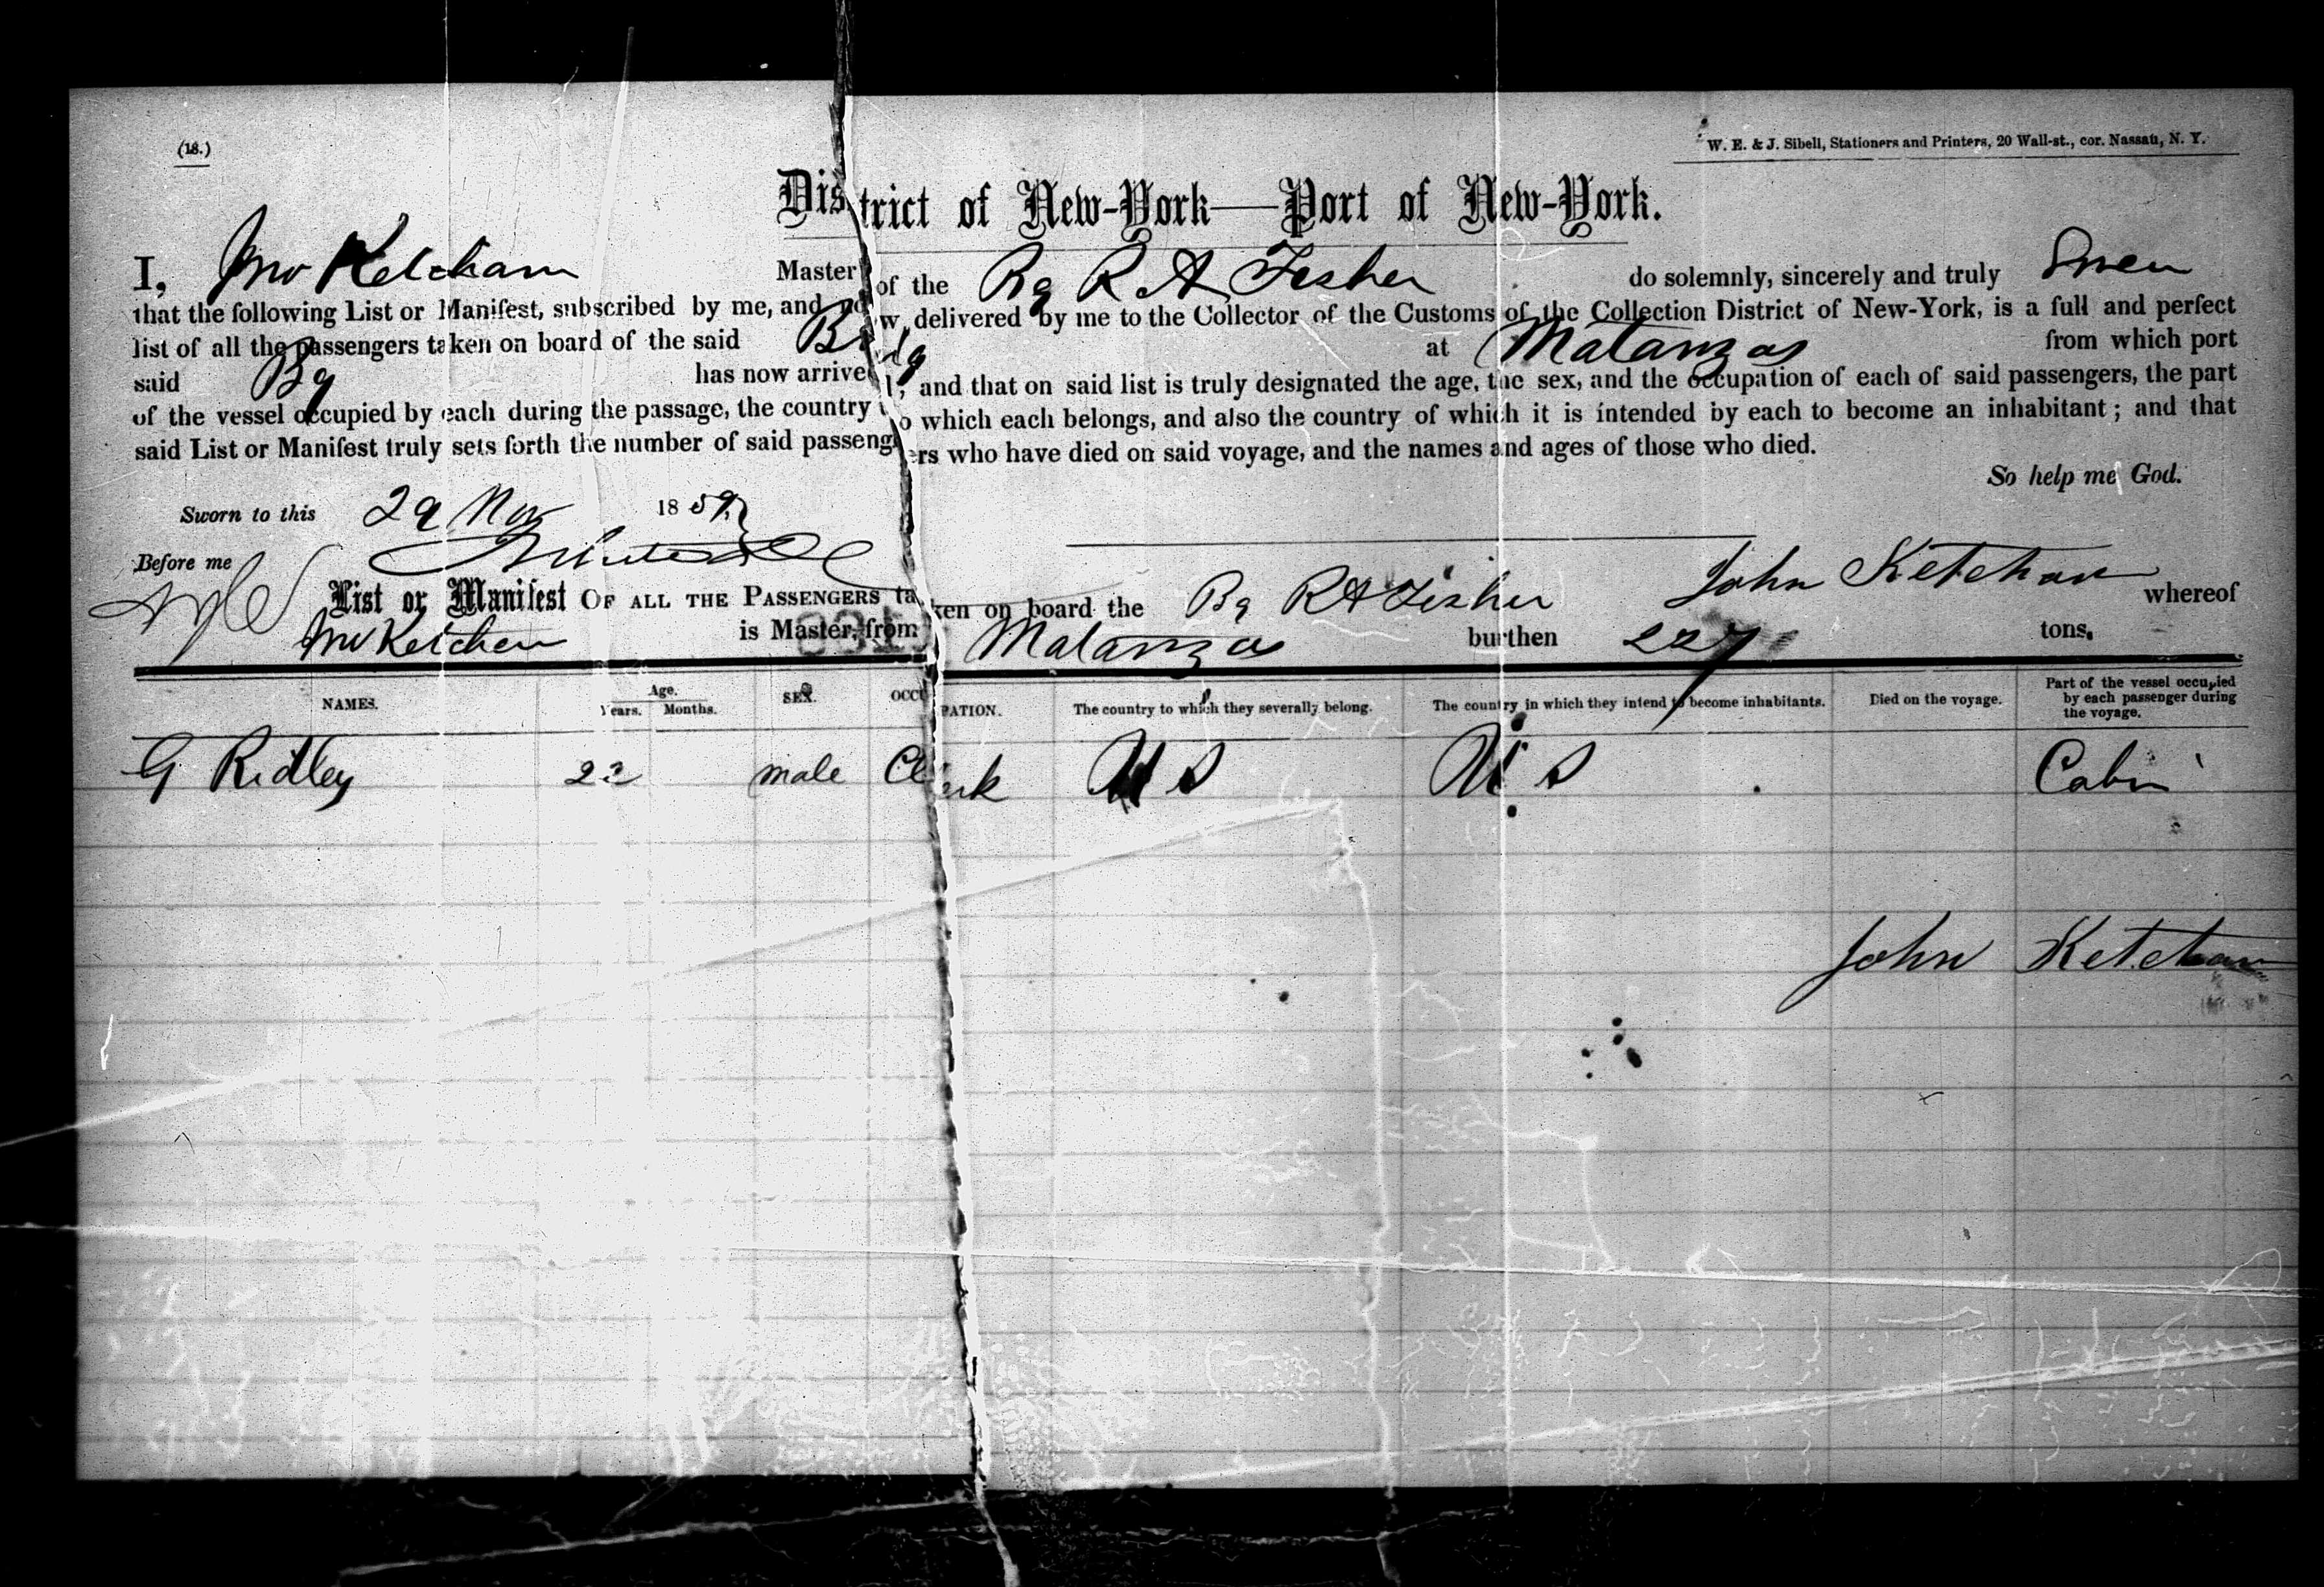 (18.)
W. E. & J. Sibell, Stationers and Printers, 20 Wall-st., cor. Nassau, N. Y.
District of New-York—Port of New-York.
I, Jno Ketcham Master of the Bg R A Fisher do solemnly, sincerely and truly Swear
that the following List or Manifest, subscribed by me, and now delivered by me to the Collector of the Customs of the Collection District of New-York, is a full and perfect
list of all the passengers taken on board of the said Brig at Matanzas from which port
said Bg has now arrived, and that on said list is truly designated the age, the sex, and the occupation of each of said passengers, the part
of the vessel occupied by each during the passage, the country to which each belongs, and also the country of which it is intended by each to become an inhabitant; and that
said List or Manifest truly sets forth the number of said passengers who have died on said voyage, and the names and ages of those who died.
So help me God.
Sworn to this 29 Nov 1859
Before me
John Ketcham
List or Manifest OF ALL THE PASSENGERS taken on board the Bg R A Fisher whereof
Jno Ketcham is Master, from Matanzas burthen 227 tons.
NAMES. Age. Years. Months. SEX. OCCUPATION. The country to which they severally belong. The country in which they intend to become inhabitants. Died on the voyage. Part of the vessel occupied by each passenger during the voyage.
G Ridley male Clerk U S U S Cabin
John Ketcham